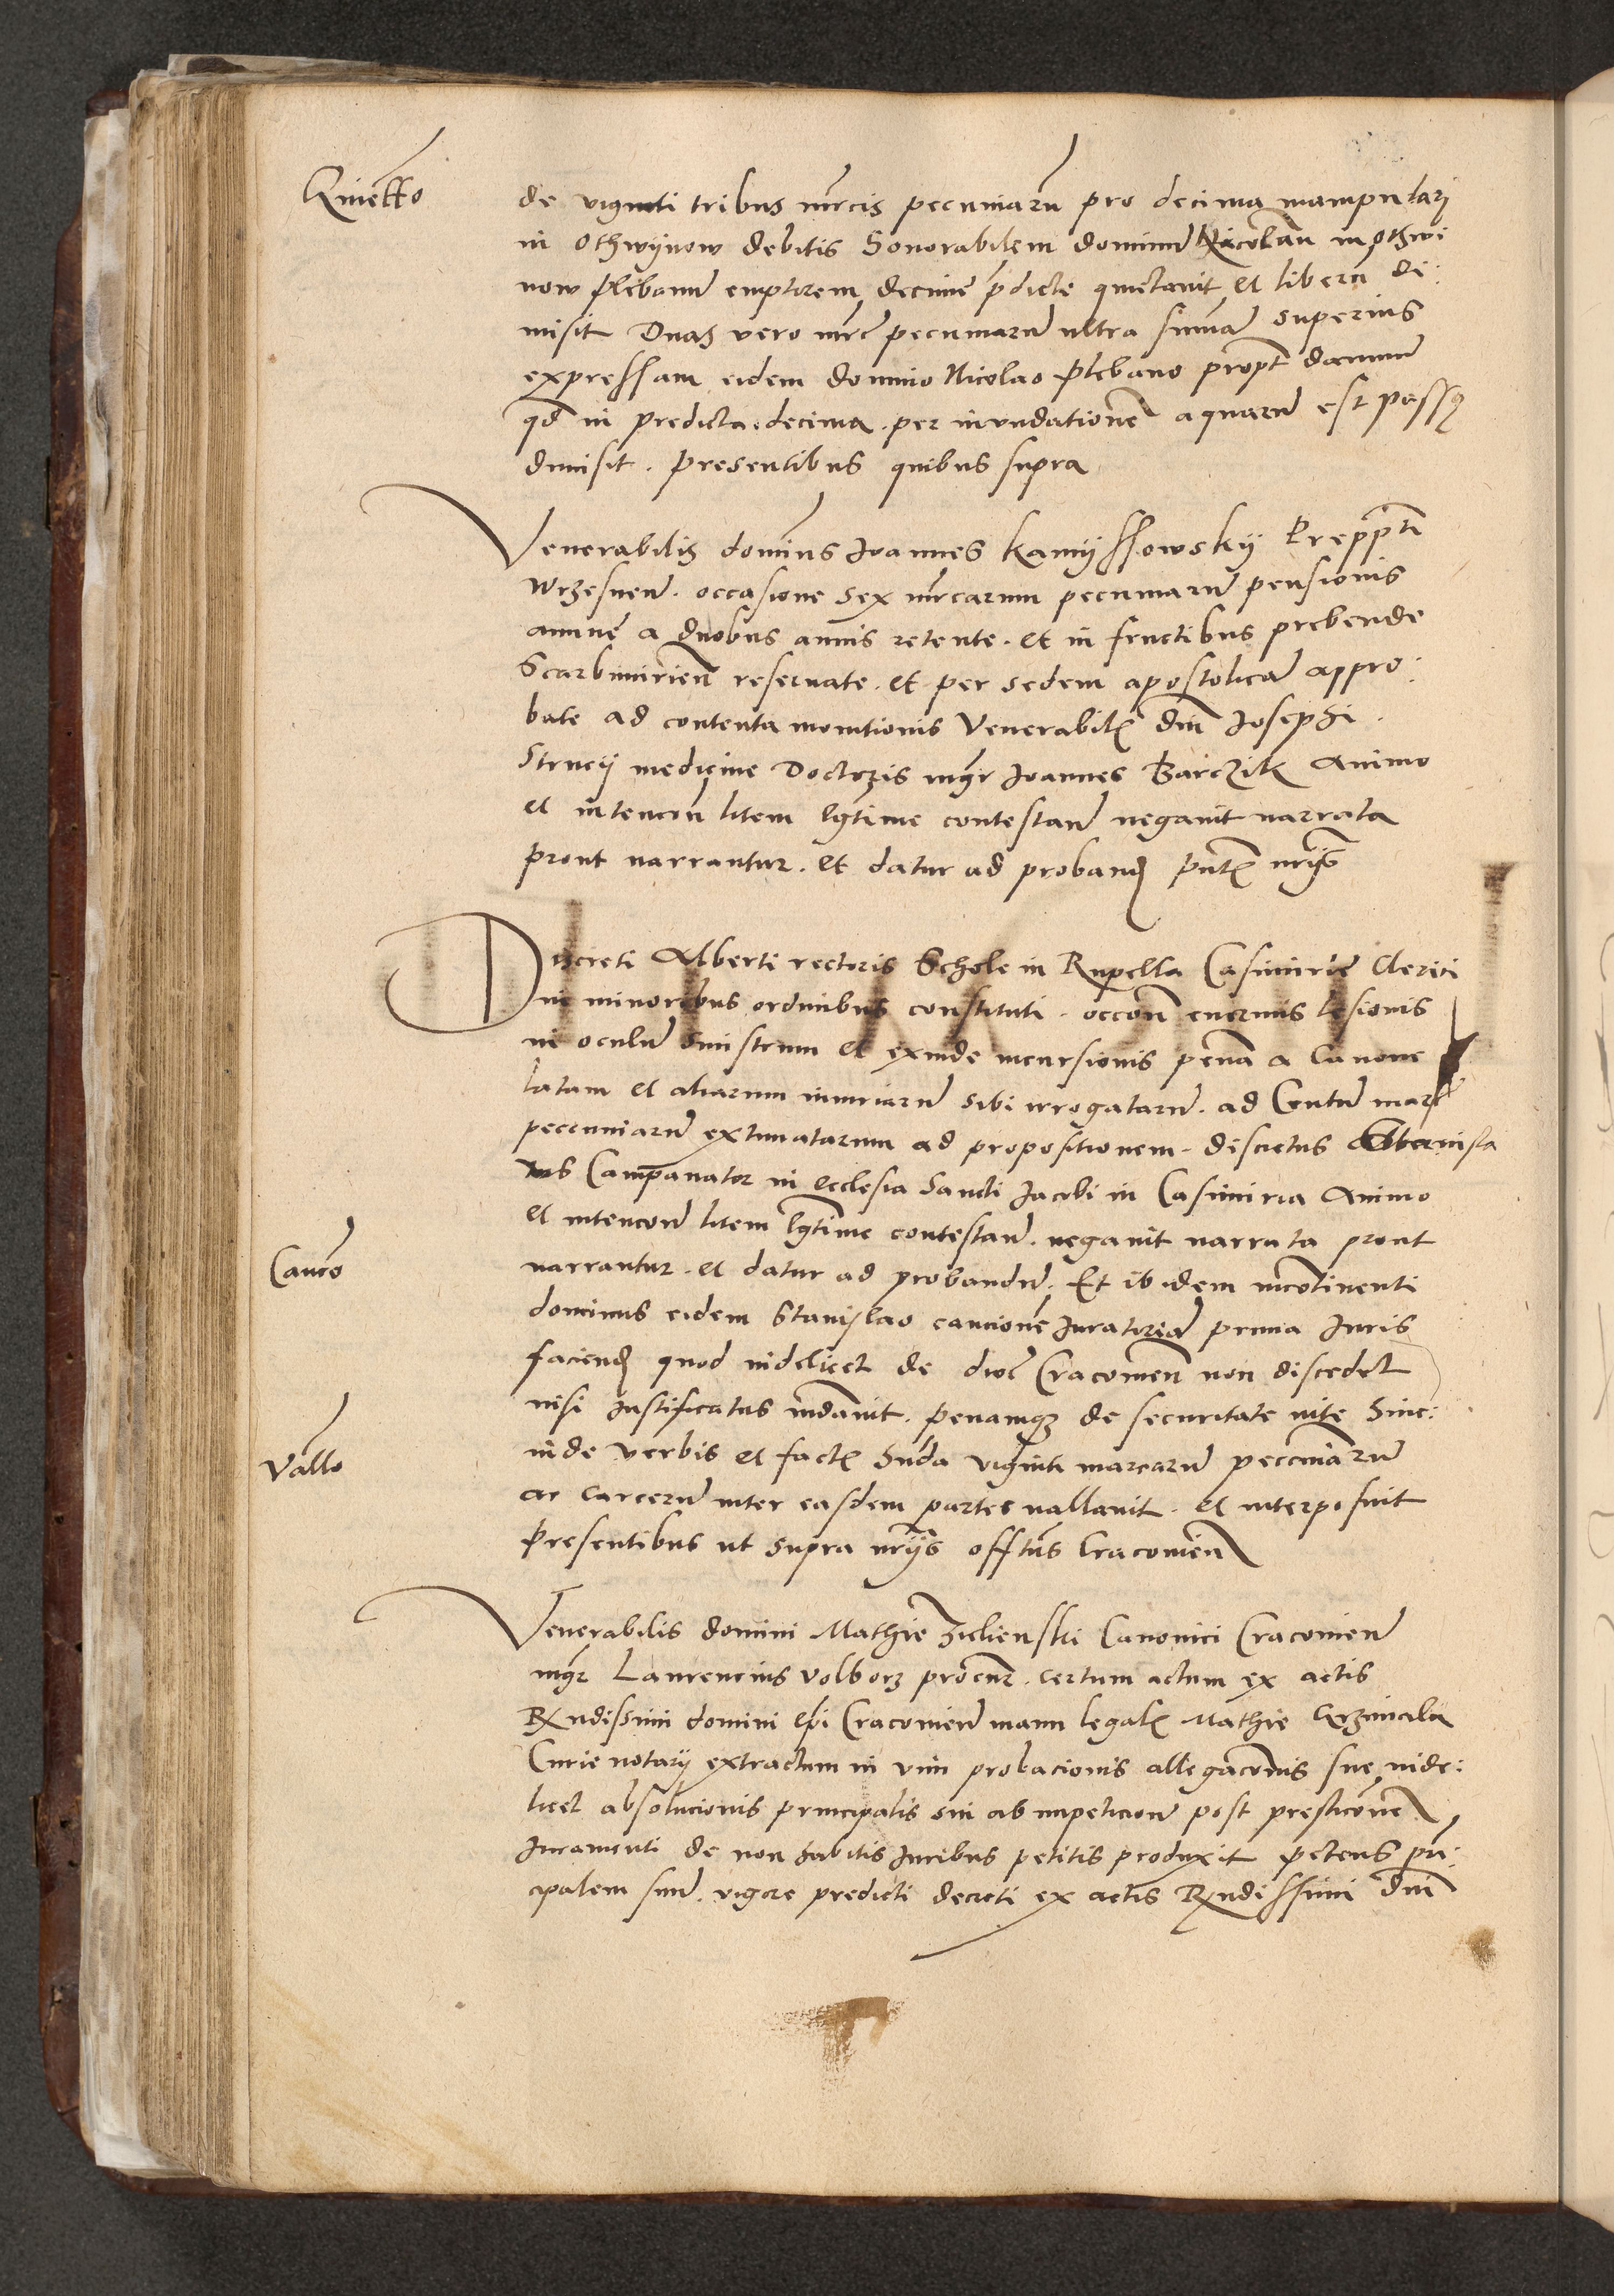 Quietto
de viginti tribus mrcis pecuniaru pro decima manipulari
in Othwijnow debitis honorabilem dominu Nicolau in Othwi
now plebanu emptorem decime pdicte quietauit et liberu di:
misit Duas vero mrc pecuniaru ultra suma superius
expressam eidem domino Nicolao Plebano propt damnu
qd in predicta decima per inundatione aquaru est passq
dimisit. Presentibus quibus supra
Venerabilis dominus Joannes Kamijssowskij Preppti
Wrzesnen. occasione sex mrcarum pecuniaru pensionis
annue a duobus annis retente. et in fructibus prebende
Scarbimirien reseruate. et per sedem apostolica appro:
bate ad contenta monitionis Venerabil dni Josephi
Strucij medicine Doctoris mgr Joannes Barczik Animo
et intencon litem lgtime contestan negauit narrata
prout narrantur. et datur ad proband pntt nrijs
Discreti Alberti rectoris Schole in Rupella Casimirie Clerici
in minoribus ordinibus constituti. occon enormis lesionis
in oculu sinistrum et exinde incursionis pena a Canone
latam et aliarum iniuriaru sibi irrogataru. ad Centu marc
pecuniaru extimatarum ad propositionem. discretus Stanisla
us Campanator in ecclesia Sancti Jacobi in Casimiria Animo
et intencon litem lgtime contestan. negauit narrata prout
Caucio
narrantur. et datur ad probandu. Et ibidem incontinenti
dominus eidem Stanislao caucione Juratoria prima Juris
faciend quod uidelicet de dioc Cracouien non discedet
nisi justificatus indauit. penamqz de securitate uite hinc:
Vallo
inde verbis et fact Suda viginti marcaru pecuniaru
ac Carceru inter easdem partes uallauit. et interposuit
Presentibus ut supra nrijs offtus Cracouien
Venerabilis domini Mathie Zielienski Canonici Cracouien
mgr Laurencius Volborz procur. certum actum ex actis
Rxndissimi domini epi Cracouien manu legal Mathie
Curie notarij extractum in vim probacionis allegaconis sue uide:
licet absolucionis principalis sui ab impeticion post presticone
Juramenti de non habitis Juribus petitis produxit petens prn:
cipalem suu. vigore predicti decreti ex actis Rxndissimi dni